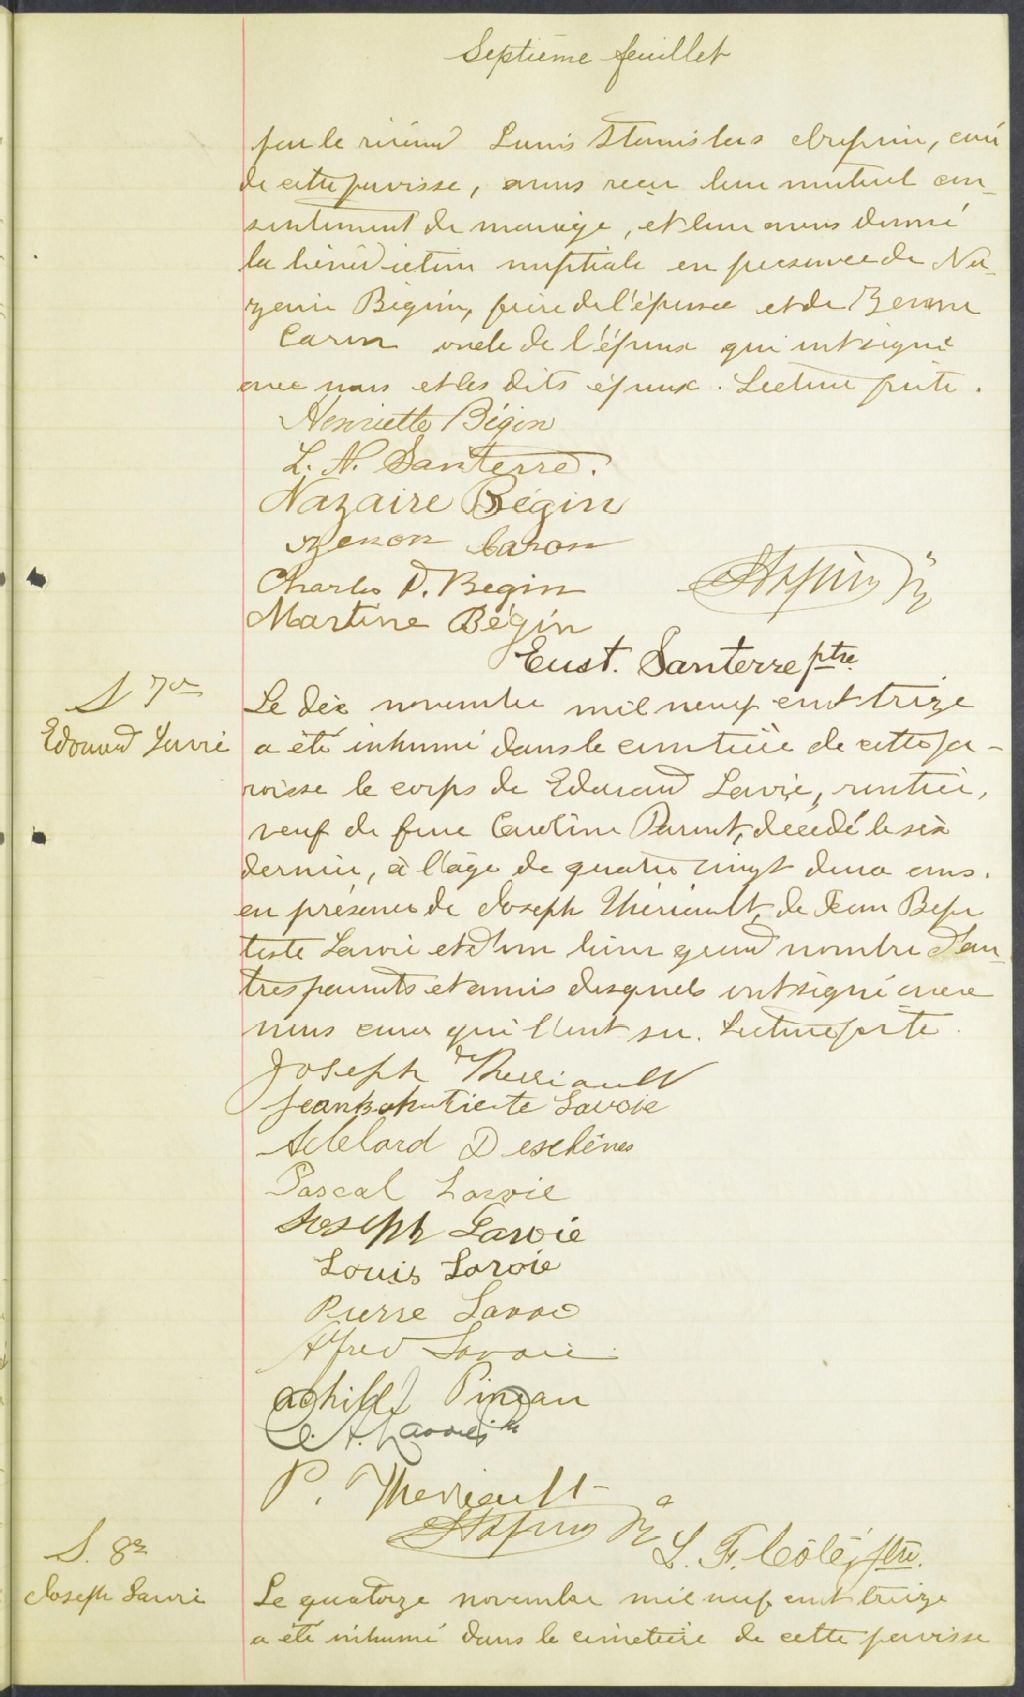 Septième feuillet
par le révérend Louis Stanislas curé
de cette paroisse, avons reçu leur mutuel con-
sentiment de mariage, et leur avons donné
la bénédiction nuptiale en présence de Na-
zaire Bégin, frère de l'épouse et de Zenon
Caron oncle de l'époux qui ont signé
avec nous et les dits époux. Lecture faite.
Henriette Bégin
L. N. Santerre.
Nazaire Bégin
Zenon Caron
Charles D. Begin
Martine Bégin
Eust. Santerre ptre
S 7e
Edouard Lavoie
Le dix novembre mil neuf cent treize
a été inhumé dans le cimetière de cette pa-
roisse le corps de Edouard Lavoie, rentier,
veuf de feue Caroline Parent, décédé le six
dernier, à l'âge de quatre vingt deux ans.
en présence de Joseph Thériault, de Jean Bap
tiste Lavoie et d'un bien grand nombre d'au-
tres parents et amis desquels ont signé avec
nous ceux qui l'ont su. Lecture faite.
Joseph Therriault
Jean Lavoie
Adelard Deschênes
Pascal Lavoie
Joseph Lavoie
Louis Lavoie
Pierre Lavoie
Alfred Lavoie
Achille Pineau
P. Theriault
L. F. Côté, ptre.
S. 8e
Joseph Lavoie
Le quatorze novembre mil neuf cent treize
a été inhumé dans le cimetière de cette paroisse